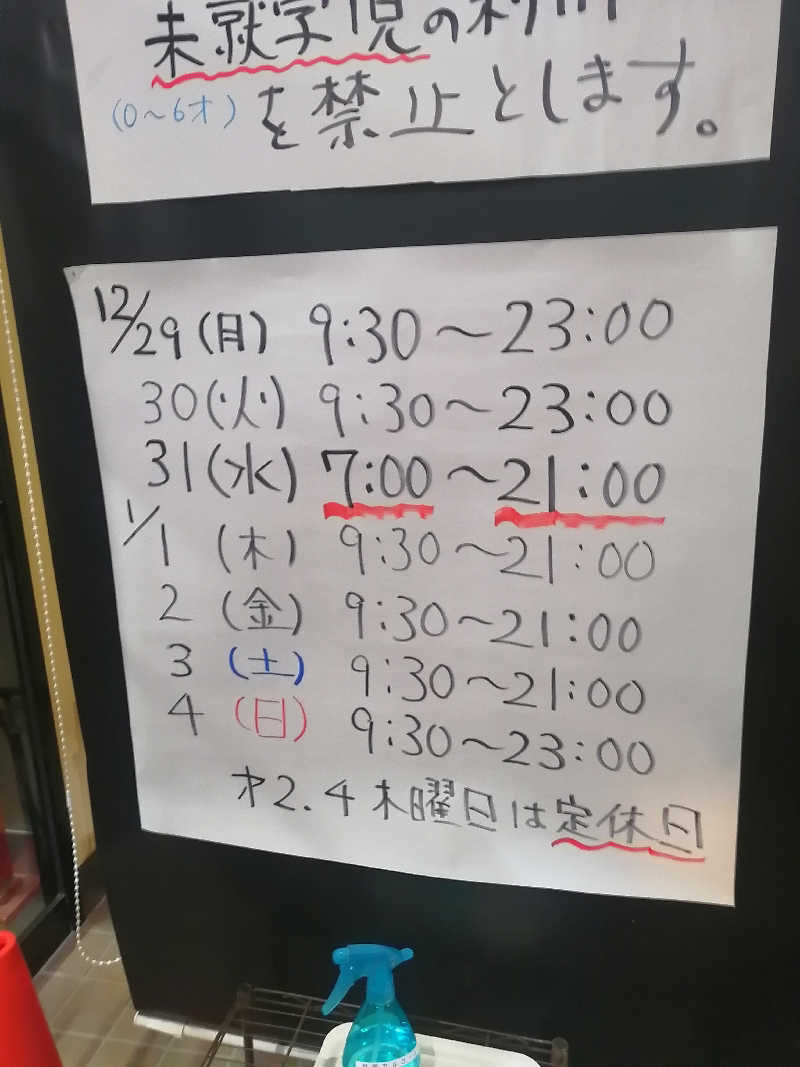 未就学児の利用
(0〜6才)を禁止とします。
12/29(月) 9:30〜23:00
30(火) 9:30〜23:00
31(水) 7:00〜21:00
1/1 (木) 9:30〜21:00
2 (金) 9:30〜21:00
3 (土) 9:30〜21:00
4 (日) 9:30〜23:00
才2.4木曜日は定休日